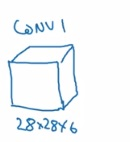 CONV1
28x28x6